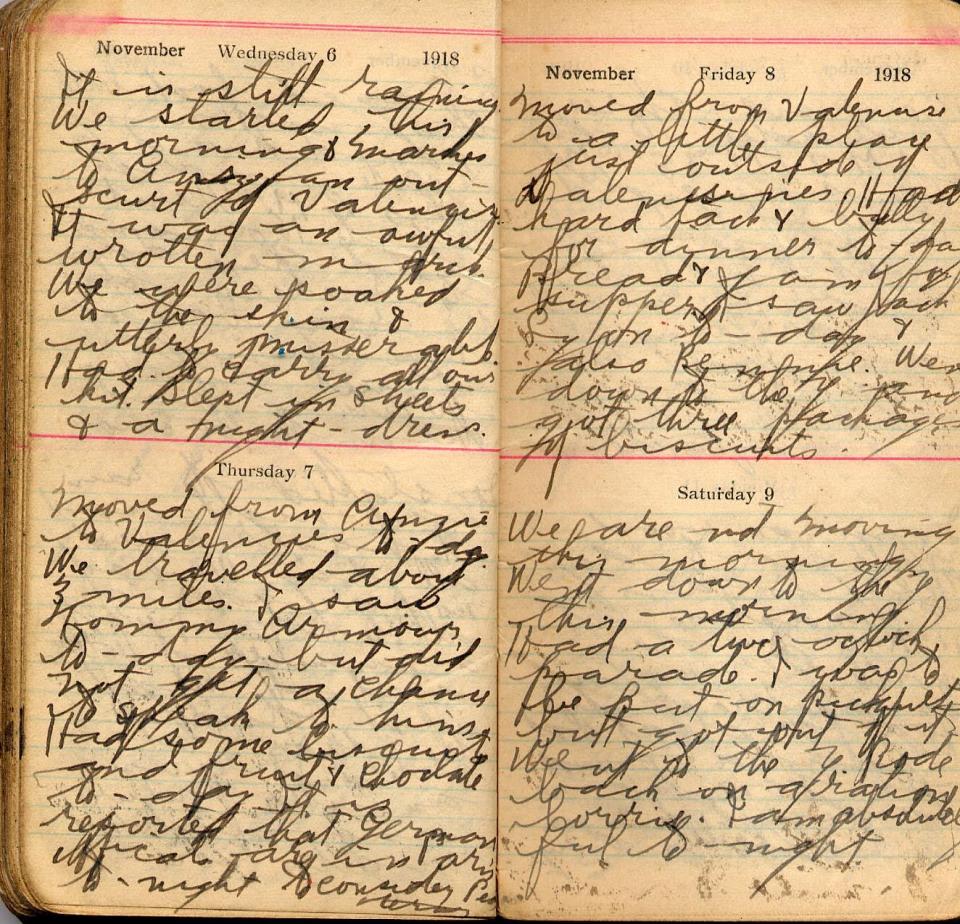 November Wednesday 6 1918
It is still raining
We started this
morning & marched
to Anzin an out-
scurt of Valencin
It was an awful
wrotten morning
We where soaked
to the skin &
utterly misserable.
Had to carry all our
kit. Slept in sheets
& a night-dress.
Thursday 7
Moved from Anzin
to Valennies to-day
We travelled about
3 miles. I saw
Tommy Armour
to-day but did
not get a chance
to speak to him.
Had some bisquits
and fruit & choclate
to-day. It is
reported that German
offical are in
to-night to consider
November Friday 8 1918
Moved from Valennise
to a little place
just outside of
Had
hard tack & bully
for dinner to-day
Bread & jam for
supper. I saw Jack
to-day &
also We went
down to the and
got three packages
of biscuits.
Saturday 9
We are not moving
this morning
Went down to the
this morning.
Had a two oclock
parade. I was to
be put on picquet
but got out of it.
Went to the Y Rode
back on a ration
lorrie. I am absolutel
ful to-night.